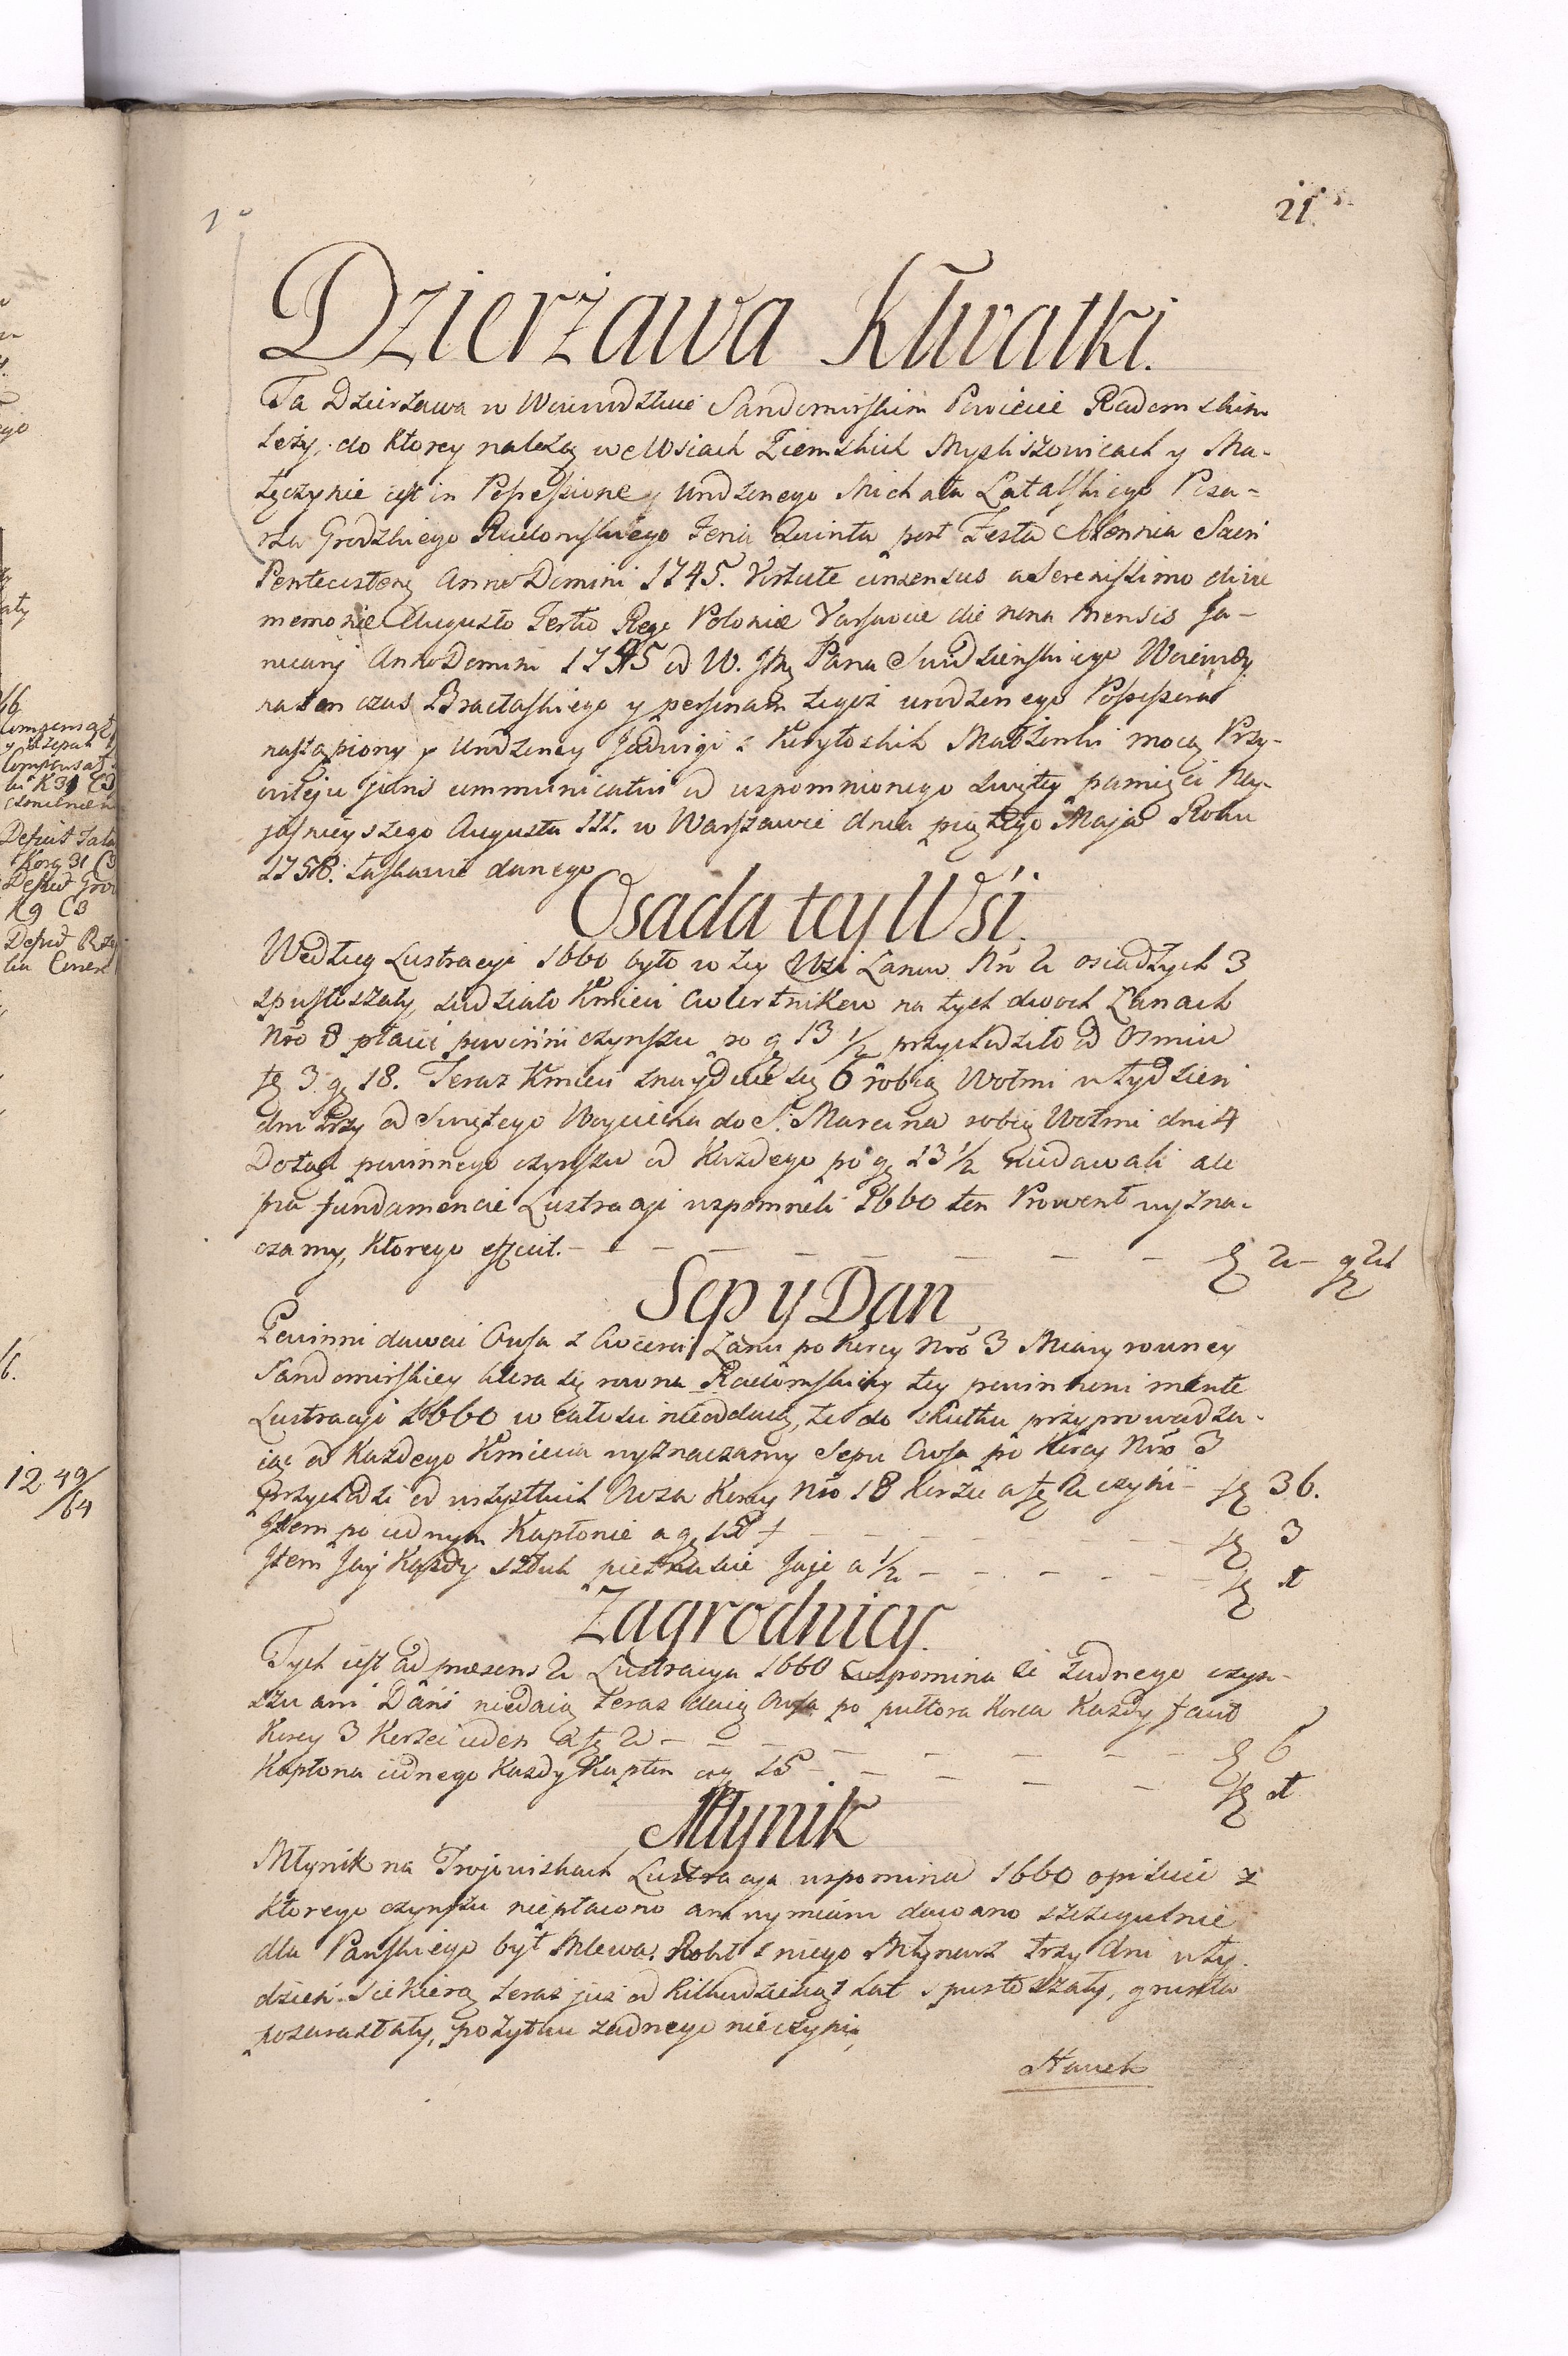 1o
21
Dzierżawa Kłwatki.
Ta Dzierżawa w Woiewodztwie Sandomirskim Powiecie Radomskim
leży, do ktorey należą we Wsiach Ziemskich Myśliszowicach y Ma-
łęczynie iest in Possessione Urodzonego Michała Latalskiego Pisa-
rza Grodzkiego Radomskiego Feria Quinta post Festa Solennia Sacri
Pentecostes Anno Domini 1745. Virtute consensus a Serenissimo divæ
memoriæ Augusto Tertio Rege Poloniæ Varsaviæ die nona mensis Ja-
nuarij Anno Domini 1745 od W. Jmci Pana Swidzinskiego Woiewody
na ten czas Bracławskiego y personam tegoż urodzonego Possessora
nastąpiony y Urodzoney Jadwigi z Kuryłoskich Małżonki mocą Przy-
wileju Juris communicativi od wspomnionego świętey pamięci Nay-
jaśnieyszego Augusta III. w Warszawie dnia piątego Maja Roku
1758. łaskawie danego
Osada tey Wśi.
Według Lustracyi 1660 było w tey Wsi Łanow Nro 2 osiadłych 3
spustoszały, siedziało Kmieci Cwiertnikow na tych dwoch Łanach
Nro 8 płacić powinni czynszu po g 13 1/2 przychodziło od Osmiu
fl 3 g 18. Teraz Kmieci znayduie się 6 robią Wołmi w tydzien
dni trzy od Swiętego Woyciecha do S. Marcina robią Wołmi dni 4
Dotąd powinnego czynszu od Każdego po g 13 1/2 niedawali ale
na fundamencie Lustracyi wspomneli 1660 ten Prowent wyzna-
czamy, Ktorego efficit. - - - - - - - fl 2 - g 21
Sep y Dan
Powinni dawać Owsa z Cwierci Łanu po Korcy Nro 3 Miary rowney
Sandomirskiey ktora się rowna Radomskiey tey powinnoni mente
Lustracyi 1660 w całosci nieoddaią, te do skutku przyprowadza-
iąc od Każdego Kmiecia wyznaczamy Sepu Owsa po Korcy Nro 3
przychodzi od wszystkich Owsa Korcy Nro 18 Korzec a fl 2 czyni - fl 36.
Item po iednym Kapłonie a g 15 f - - - - - fl 3
Item Jay Każdy sztuk pietnascie Jaje a 1/2 - - - - - fl 1
Zagrodnicy.
Tych iest ad præsens 2 Lustracya 1660 wspomina że żadnego czyn-
szu ani Dani niedaią teraz daią Owsa po pułtora Korca Każdy facit
Korcy 3 Korzec ieden a fl 2 - - - - - - fl 6
Kapłona iednego Każdy Kapłon a g 15 - - - - - fl 1
Młynik
Młynik na Trojowiskach Lustracya wspomina 1660 opisuie z
Ktorego czynszu niepłacono ani wymiaru dawano szczegulnie
dla Panskiego był Mlewa. Robił z niego Młynarz trzy dni w ty-
dzień Siekierą teraz już od Kilkudziesiąt Lat spustoszały, grunta
pozarastały, pożytku żadnego nieczyni,